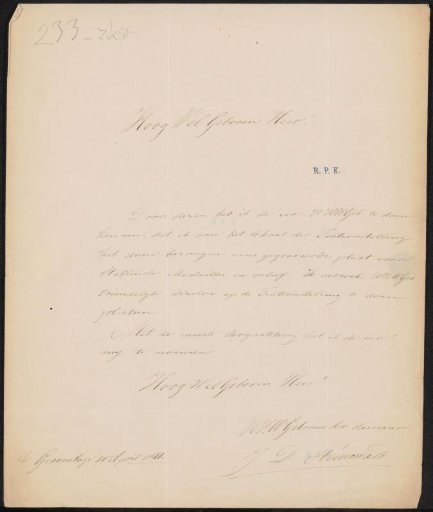 233
Hoog Wel Geboren Heer!
R. P. K.
Door dezen heb ik de eer UHWGeb te doen
kennen, dat ik aan het lokaal der Tentoonstelling
heb doen bezorgen, eene gegraveerde plaat voor
stellende Medailles in relief. Ik verzoek UHWGeb
vriendelijk dezelve op de Tentoonstelling te doen
plaatsen.
Met de meeste hoogachting heb ik de eer
mij te noemen
Hoog Wel Geboren Heer!
UHWGeborens dw. dienaar
J D
's Gravenhage 20 April